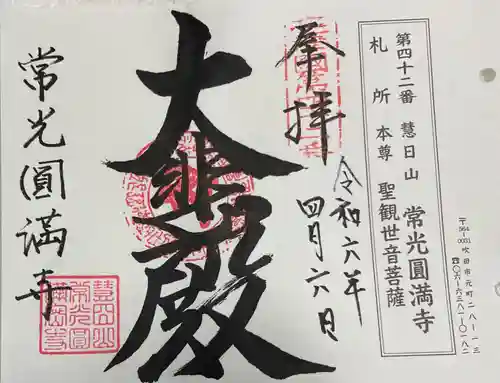 〒564-0031 吹田市元町二八-一三
☎〇六-六三八一-〇一八二
第四十二番 慧日山 常光圓満寺
札所本尊 聖観世音菩薩
奉拝
令和六年
四月六日
大悲殿
常光圓満寺
慧日山
常光圓
満寺